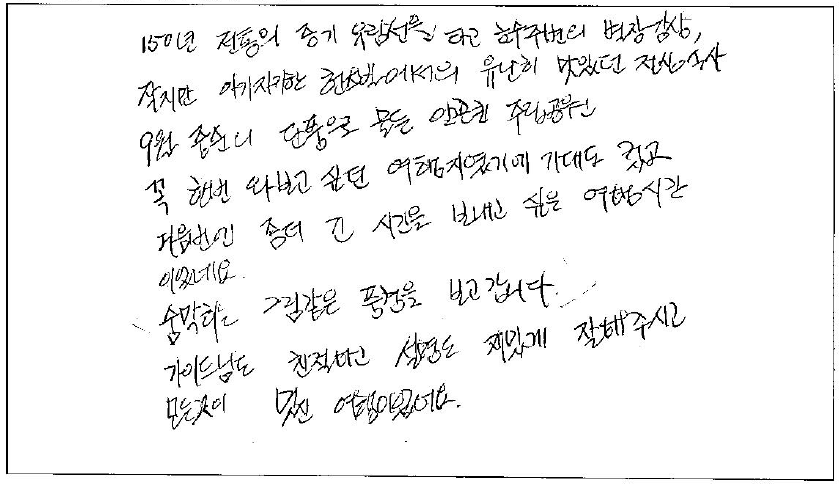 150년 전통의 증기 유람선을 타고 호수주변의 별장감상,
작지만 아기자기한 현지에서의 유난히 맛있던 점심식사
9월 중순에 단풍으로 물든 알곤퀸 주립공원
꼭 한번 와보고 싶던 여행지였기에 기대도 컸고
다음번엔 좀더 긴 시간을 보내고 싶은 여행시간
이었네요.
숨막히는 그림같은 풍경을 보고 갑니다.
가이드님도 친절하고 설명도 재밌게 잘해주시고
모든것이 멋진 여행이었네요.